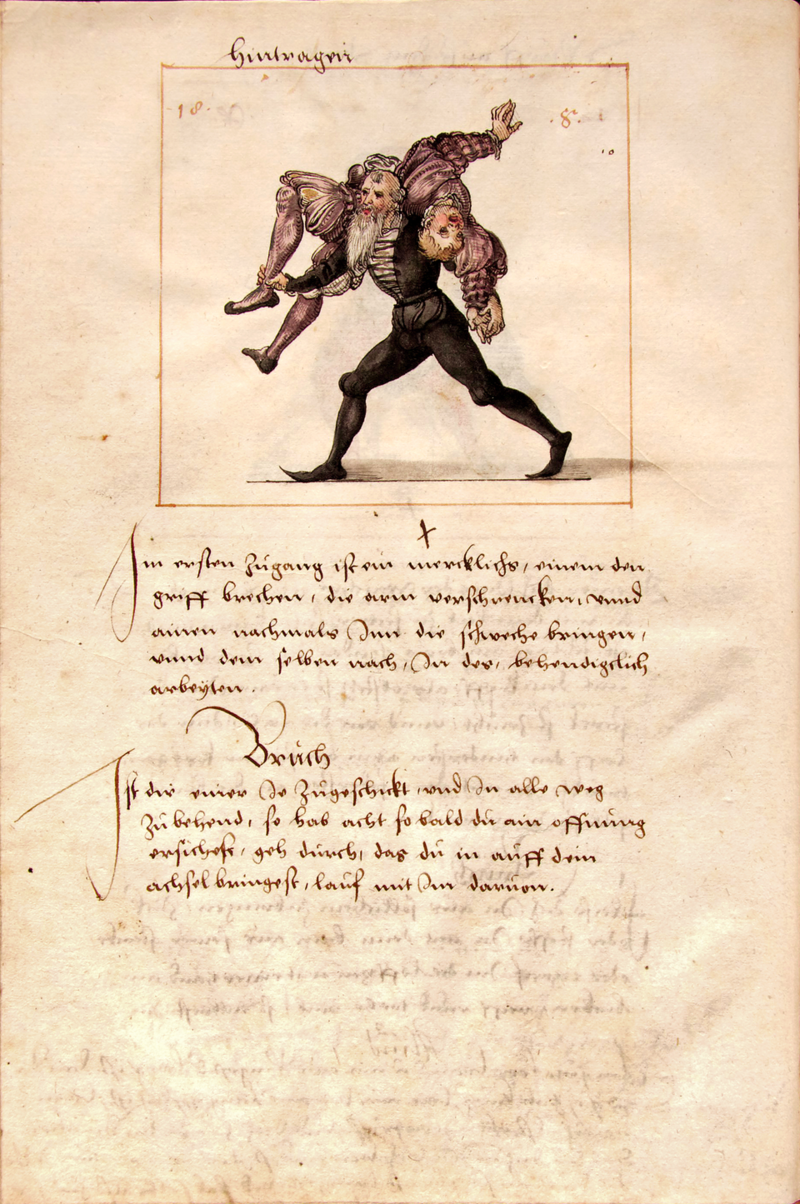 Hintragen
18.
.8.
x
Im ersten Zugang ist ein mercklichs, einem den
griff brechen, die arm verschrencken, vnnd
ainen nachmals Inn die schweche bringen,
vnnd dem selben nach, In des, behendigclich
arbeyten.
Bruch
Ist dir einer Je Zugeschickt, vnd In alle weg
Zu behend, so hab acht so bald du ain offnung
ersichest, geh durch, das du in auff dein
achsel bringest, lauf mit Im daruon.